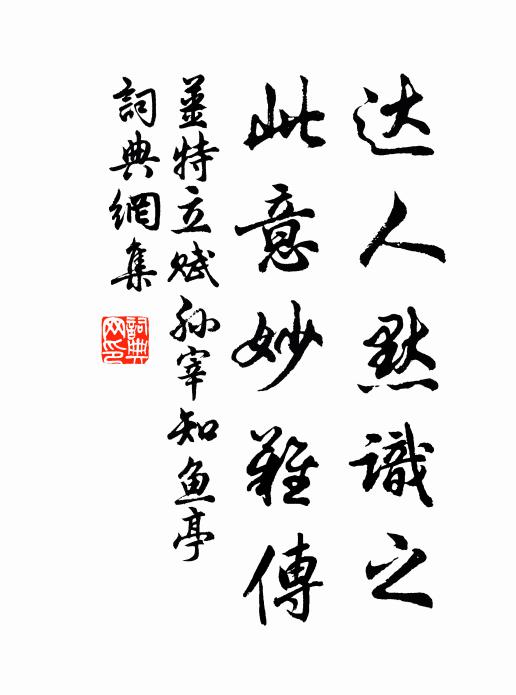 达人默識之
此意妙難傳
薑特立赋孙宰知鱼亭
詞典網集
詞典网印